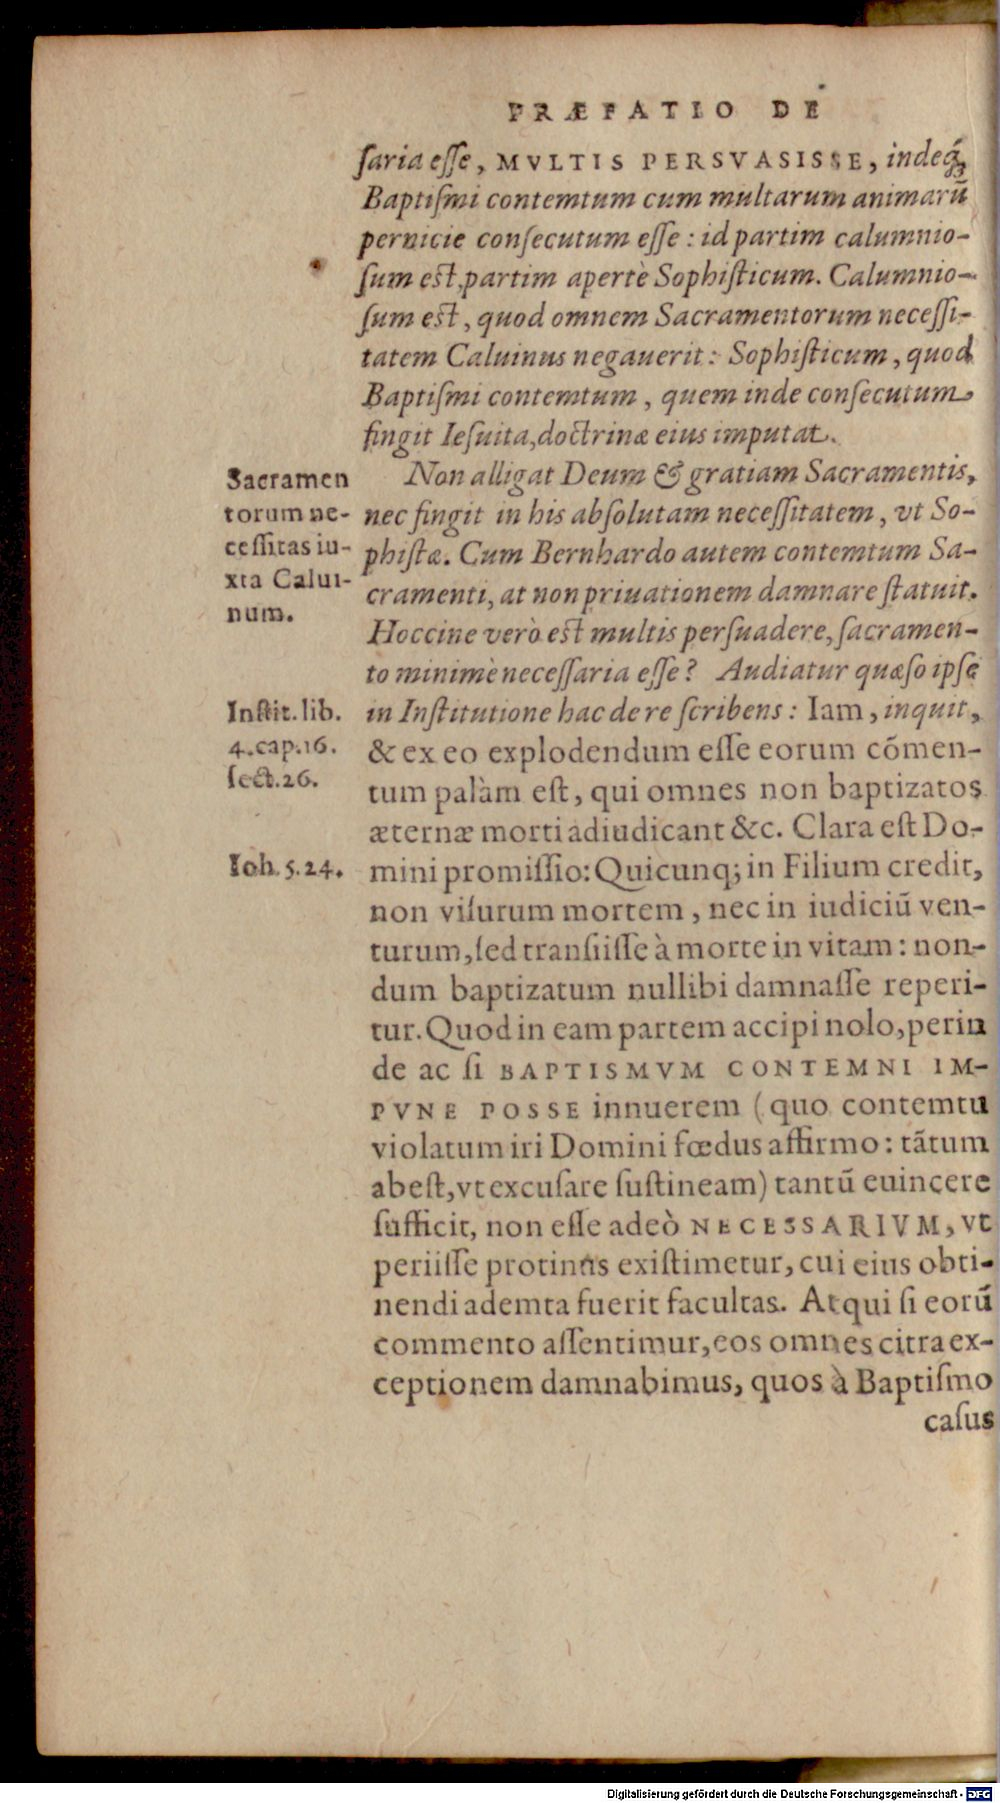 PRÆFATIO DE
ſaria eſſe, MVLTIS PERSVASISSE, indeq́;
Baptiſmi contemtum cum multarum animarū
pernicie conſecutum eſſe: id partim calumnio-
ſum est, partim apertè Sophiſticum. Calumnio-
ſum est, quod omnem Sacramentorum neceſſi-
tatem Caluinus negauerit: Sophiſticum, quod
Baptiſmi contemtum, quem inde conſecutum
fingit Ieſuita, doctrinæ eius imputat.
Sacramen
torum ne-
ceſſitas iu-
xta Calui-
num.
Non alligat Deum & gratiam Sacramentis,
nec fingit in his abſolutam neceſſitatem, vt So-
phiſtæ. Cum Bernhardo autem contemtum Sa-
cramenti, at non priuationem damnare ſtatuit.
Hoccine verò est multis perſuadere, ſacramen-
to minimè neceſſaria eſſe? Audiatur quæſo ipſe
Inſtit. lib.
4. cap. 16.
ſect. 26.
in Inſtitutione hac de re ſcribens: Iam, inquit,
& ex eo explodendum eſſe eorum cōmen-
tum palàm eſt, qui omnes non baptizatos
æternæ morti adiudicant &c. Clara eſt Do-
Ioh. 5. 24.
mini promiſſio: Quicunq; in Filium credit,
non viſurum mortem, nec in iudiciū ven-
turum, ſed tranſiiſſe à morte in vitam: non-
dum baptizatum nullibi damnaſſe reperi-
tur. Quod in eam partem accipi nolo, perin
de ac ſi BAPTISMVM CONTEMNI IM-
PVNE POSSE innuerem (quo contemtu
violatum iri Domini fœdus affirmo: tātum
abeſt, vt excuſare ſuſtineam) tantū euincere
ſufficit, non eſſe adeò NECESSARIVM, vt
periiſſe protinus exiſtimetur, cui eius obti-
nendi ademta fuerit facultas. Atqui ſi eorū
commento aſſentimur, eos omnes citra ex-
ceptionem damnabimus, quos à Baptiſmo
caſus
Digitalisierung gefördert durch die Deutsche Forschungsgemeinschaft - DFG